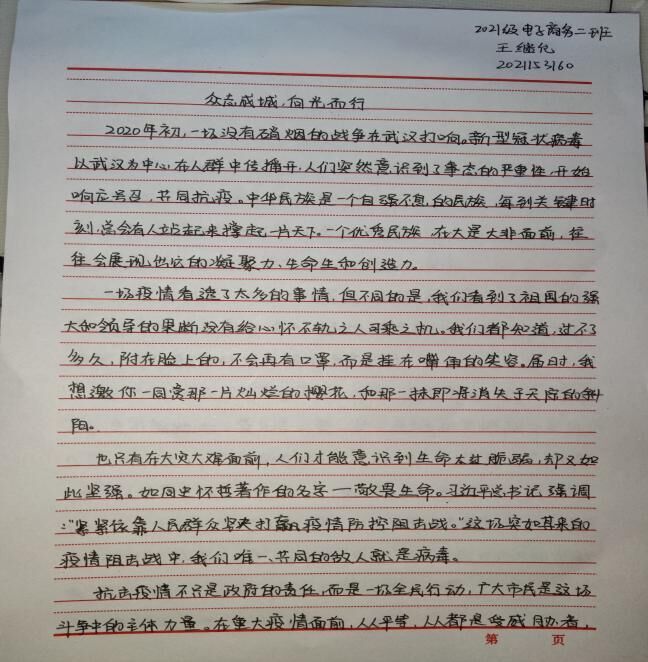 2021级电子商务二班
王继亿
2021153160
众志成城,向光而行
2020年初,一场没有硝烟的战争在武汉打响。新型冠状病毒
以武汉为中心,在人群中传播开,人们突然意识到了事态的严重性,开始
响应号召,共同抗疫。中华民族是一个自强不息的民族,每到关键时
刻,总会有人站起来撑起一片天下。一个优秀民族,在大是大非面前,往
往会展现出它的凝聚力、生命力和创造力。
一场疫情看透了太多的事情,但不同的是,我们看到了祖国的强
大和领导的果断没有给心怀不轨之人可乘之机。我们都知道,过不了
多久,附在脸上的,不会再有口罩,而是挂在嘴角的笑容。届时,我
想邀你一同赏那一片灿烂的樱花,和那一抹即将消失于天际的斜
阳。
也只有在大灾大难面前,人们才能意识到生命太过脆弱,却又如
此坚强。如同史怀哲著作的名字一敬畏生命。习近平总书记强调
:“紧紧依靠人民群众坚决打赢疫情防控阻击战。”这场突如其来的
疫情阻击战中,我们唯一、共同的敌人就是病毒。
抗击疫情不只是政府的责任,而是一场全民行动,广大市民是这场
斗争中的主体力量。在重大疫情面前,人人平等,人人都是受威胁者,
第 页